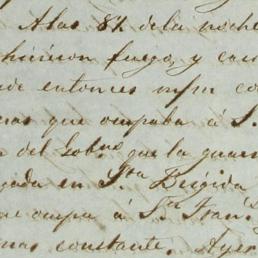 A las 8½ de la noche
hicieron fuego, y
de entonces
mas que ocupaba á S.
del Gobno. que la guar
gada en Sta. Brígida
e ocupa á Sn. Fran
mas constante. Ayer